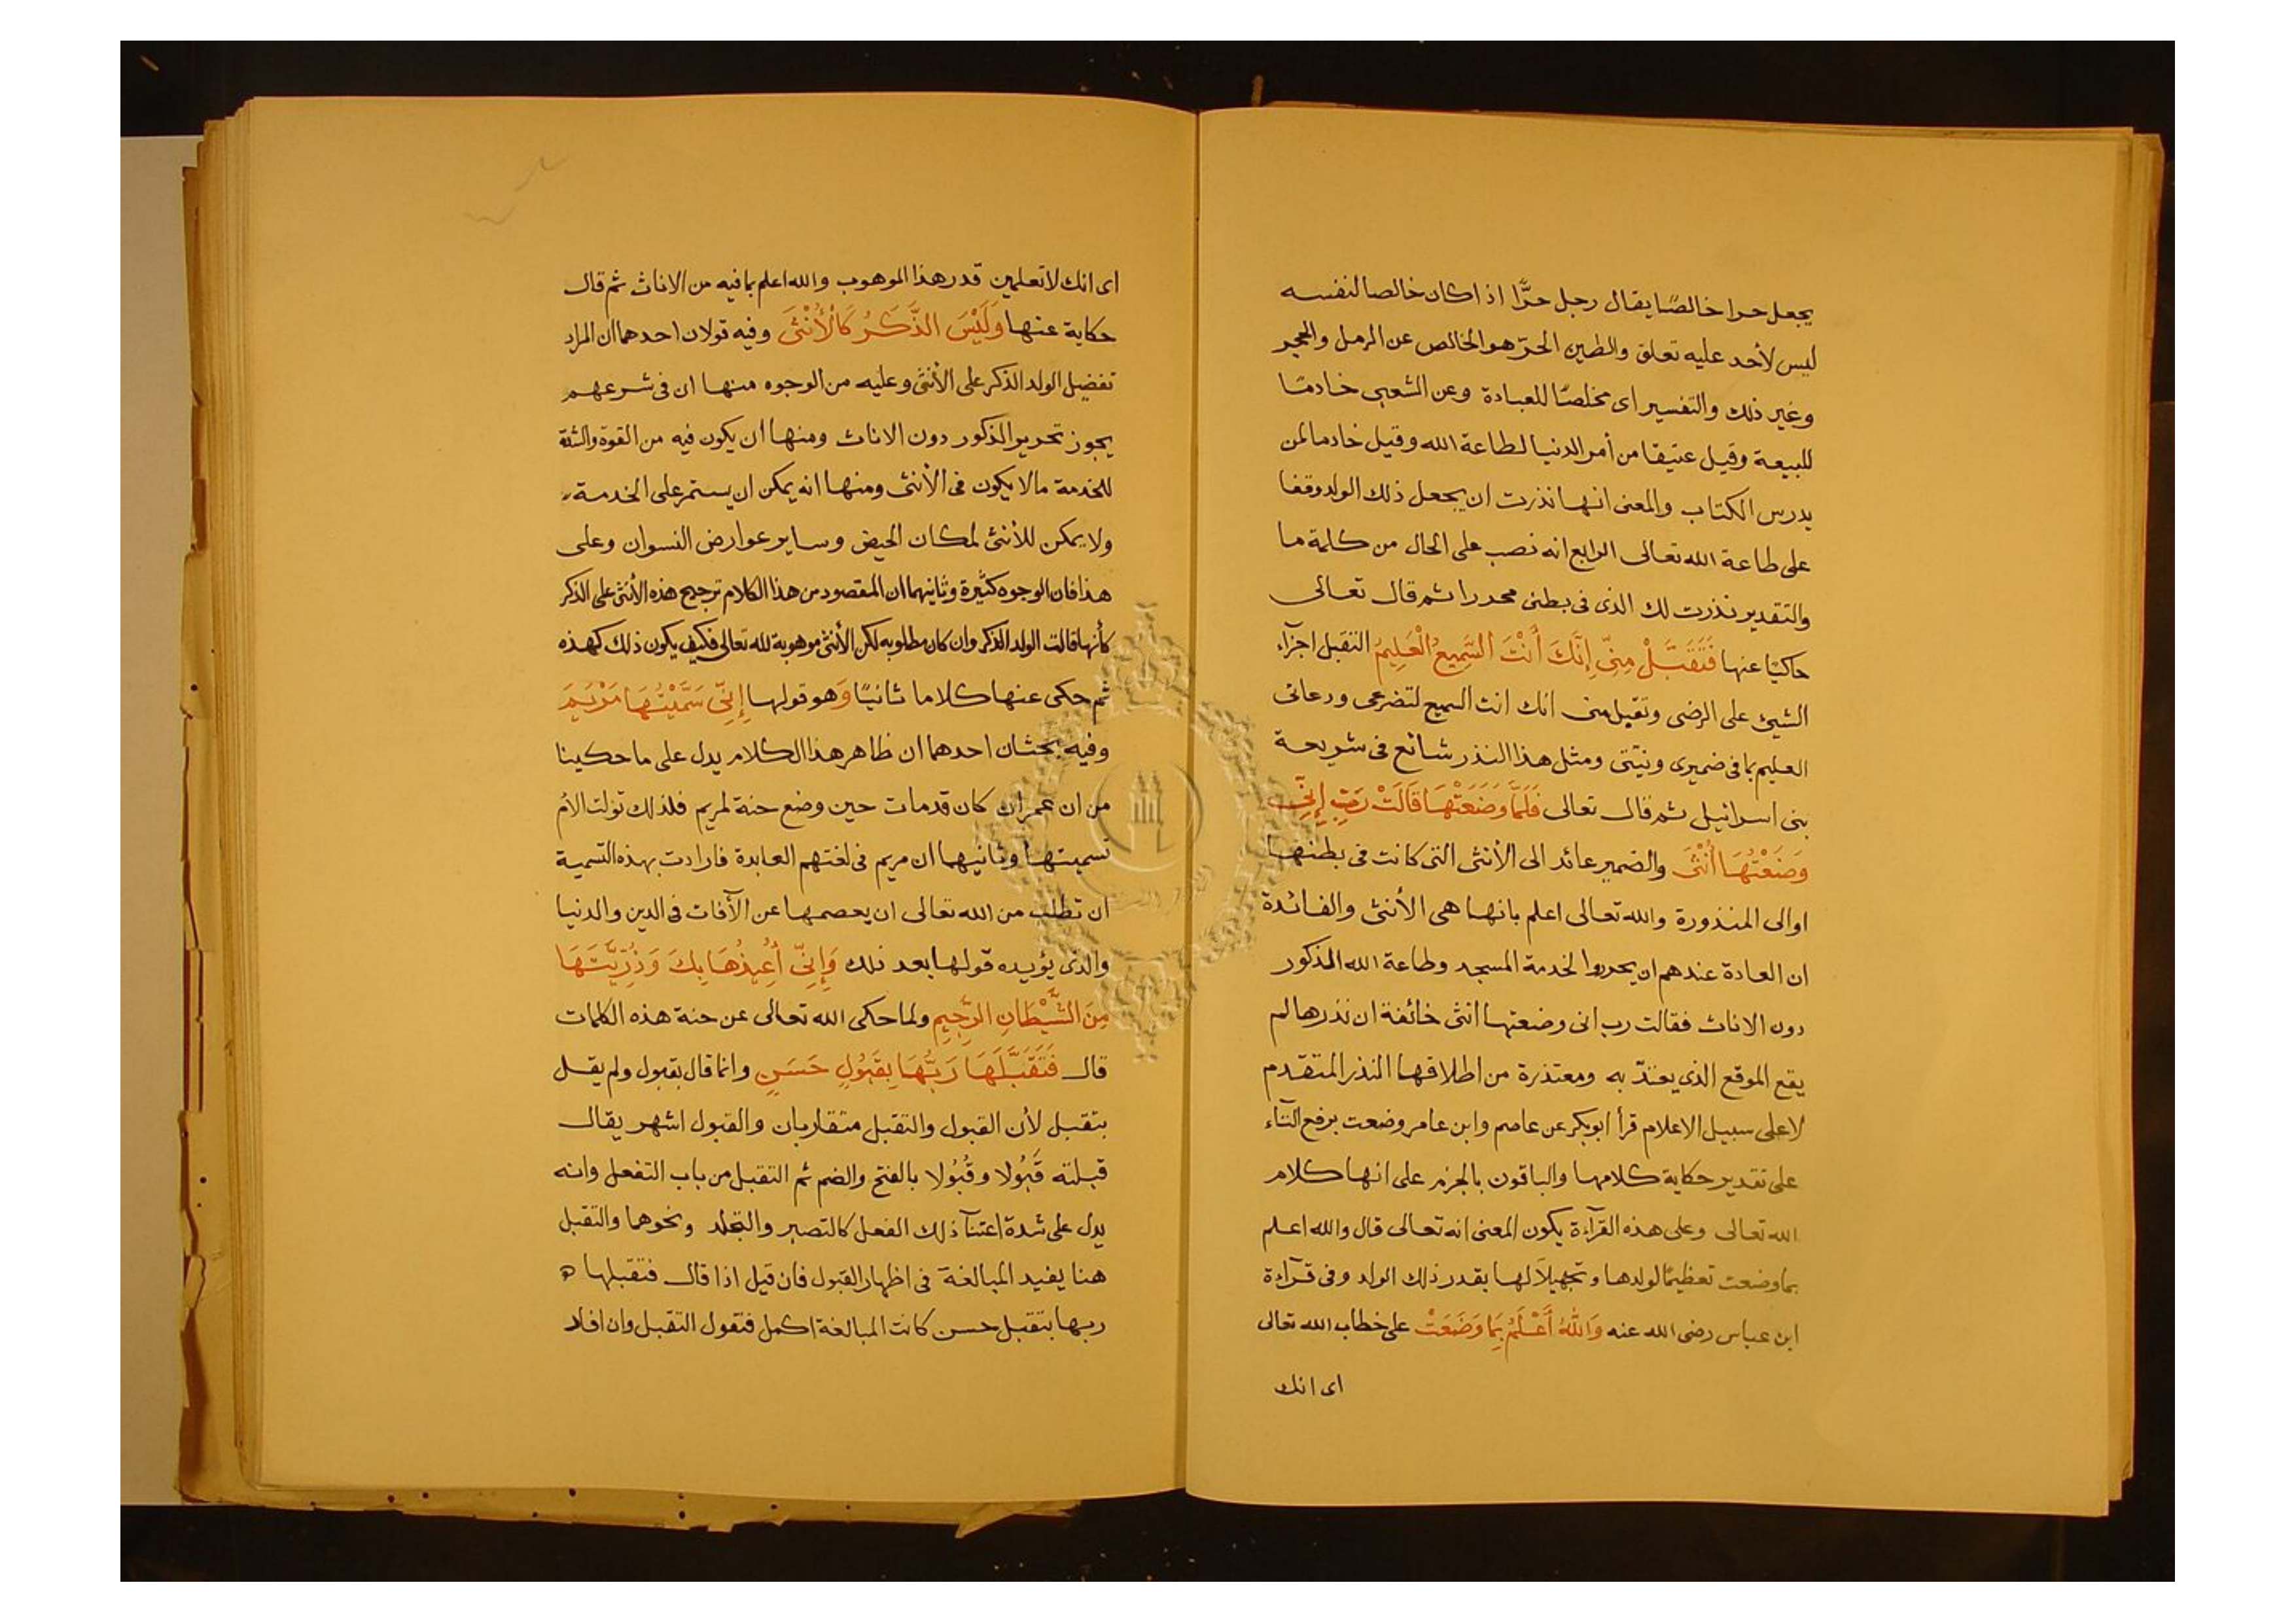 يجعل حرا خالصًا يقال رجل حرًّا اذا كان خالصا لنفسه
ليس لأحد عليه تعلق والطين الحرّ هو الخالص عن الرمل والحجر
وغير ذلك والتفسير اى مخلصًا للعبادة وعن الشعبى خادمًا
للبيعة وقيل عتيقا من أمر الدنيا لطاعة الله وقيل خادما لمن
يدرس الكتاب والمعنى انها نذرت ان يجعل ذلك الولد وقفا
على طاعة الله تعالى الرابع انه نصب على الحال من كلمة ما
والتقدير نذرت لك الذى فى بطنى محررا ثم قال تعالى
حاكيًا عنها فَتَقَبَّلْ مِنِّى إِنَّكَ أَنْتَ السَّمِيعُ الْعَلِيمُ التقبل اجزآء
الشيئ على الرضى وتقبل منى انك انت السميع لتضرعى ودعائى
العليم بما فى ضميرى ونيّتى ومثل هذا النذر شائع فى شريعة
بنى اسرائيل ثم قال تعالى فَلَمَّا وَضَعَتْهَا قَالَتْ رَبِّ إِنِّى
وَضَعْتُهَا أُنْثَى والضمير عائد الى الأنثى التى كانت فى بطنها
اوالى المنذورة والله تعالى اعلم بانها هى الأنثى والفائدة
ان العادة عندهم ان يحرروا لخدمة المسجد وطاعة الله المذكور
دون الاناث فقالت رب انى وضعتها انثى خائفة ان نذرها لم
يقع الموقع الذى يعتدّ به ومعتذرة من اطلاقها النذر المتقدم
لا على سبيل الاعلام قرأ ابوبكر عن عاصم وابن عامر وضعت برفع التآء
على تقدير حكاية كلامها والباقون بالجزم على انها كلام
الله تعالى وعلى هذه القرآءة يكون المعنى انه تعالى قال والله اعلم
بما وضعت تعظيمًا لولدها وتجهيلاً لها بقدر ذلك الولد وفى قرآءة
ابن عباس رضى الله عنه وَاللهُ أَعْلَمُ بِمَا وَضَعَتْ على خطاب الله تعالى
اى انك
اى انك لا تعلمين قدر هذا الموهوب والله اعلم بما فيه من الاناث ثم قال
حكاية عنها وَلَيْسَ الذَّكَرُ كَالْأُنْثَى وفيه قولان احدهما ان المراد
تفضيل الولد الذكر على الأنثى وعليه من الوجوه منها ان فى شرعهم
يجوز تحرير الذكور دون الاناث ومنها ان يكون فيه من القوة والشدة
للخدمة مالا يكون فى الأنثى ومنها انه يمكن ان يستمر على الخدمة
ولا يمكن للأنثى لمكان الحيض وساير عوارض النسوان وعلى
هذا فان الوجوه كثيرة وثانيهما ان المقصود من هذا الكلام ترجيح هذه الأنثى على الذكر
كأنها قالت الولد الذكر وان كان مطلوبه لكن الأنثى موهوبة لله تعالى فكيف يكون ذلك كهذه
ثم حكى عنها كلاما ثانيًا وَهو قولها إِنِّى سَمَّيْتُهَا مَرْيَمَ
وفيه بحثان احدهما ان ظاهر هذا الكلام يدل على ما حكينا
من ان عمران كان قد مات حين وضع حنة لمريم فلذلك تولت الأم
تسميتها وثانيهما ان مريم فى لغتهم العابدة فارادت بهذه التسمية
ان تطلب من الله تعالى ان يعصمها عن الآفات فى الدين والدنيا
والذى يؤيده قولها بعد ذلك وَإِنِّى أُعِيذُهَا بِكَ وَذُرِّيَّتَهَا
مِنَ الشَّيْطَانِ الرَّجِيمِ ولما حكى الله تعالى عن حنة هذه الكلمات
قال فَتَقَبَّلَهَا رَبُّهَا بِقَبُولٍ حَسَنٍ وانما قال بقبول ولم يقل
بتقبل لأن القبول والتقبل متقاربان والقبول اشهر يقال
قبلته قَبُولا وقُبُولا بالفتح والضم ثم التقبل من باب التفعل وانه
يدل على شدة اعتنآ ذلك الفعل كالتصبر والتجلد ونحوهما والتقبل
هنا يفيد المبالغة فى اظهار القبول فان قيل اذا قال فتقبلها
ربها بتقبل حسن كانت المبالغة اكمل فنقول التقبل وان افاد